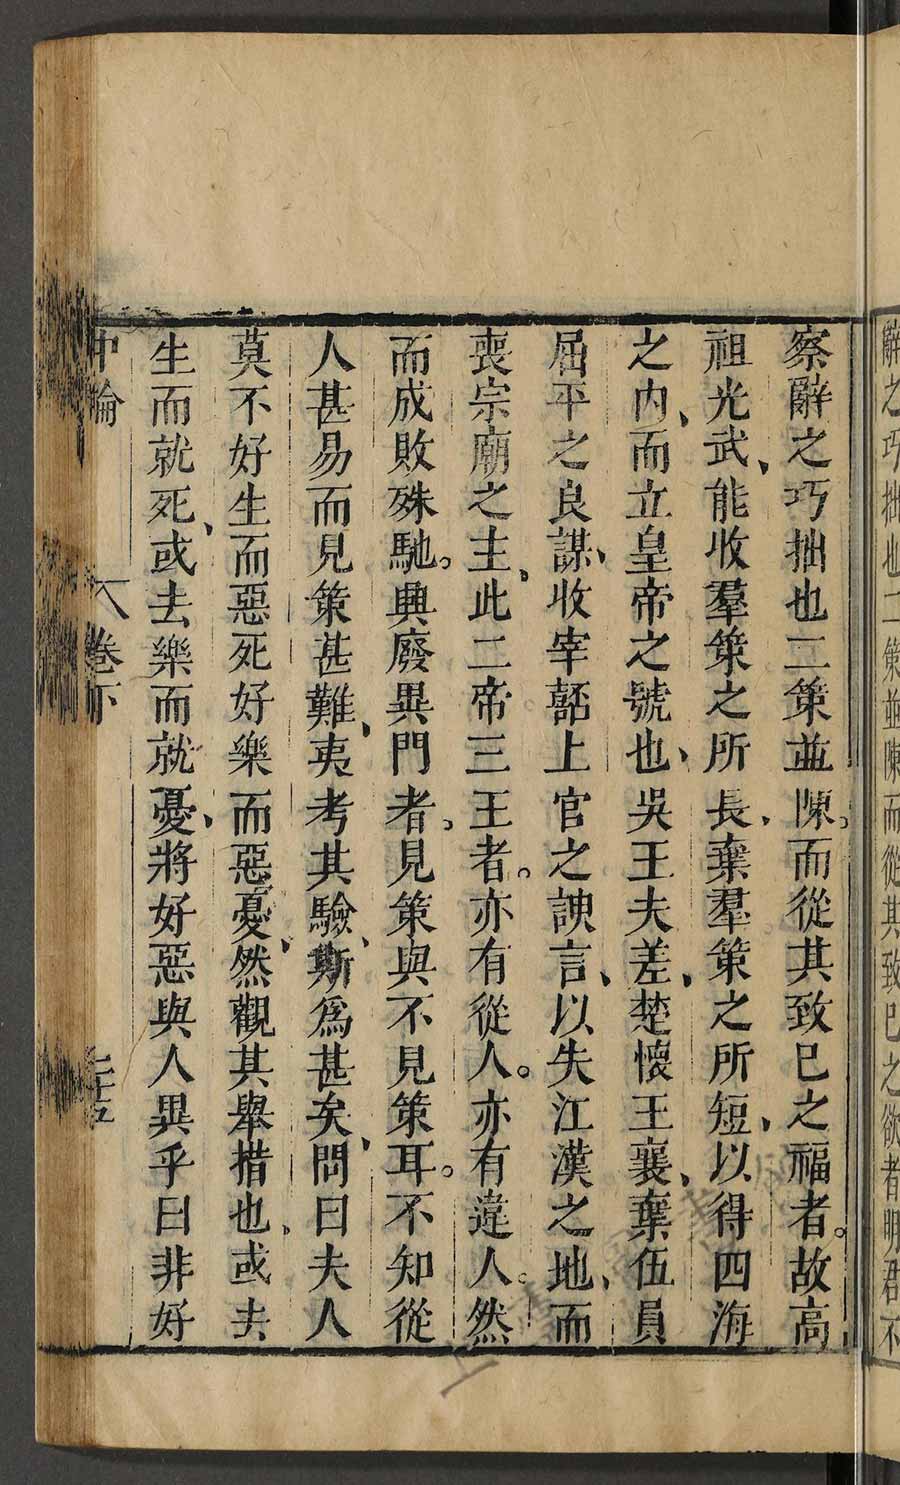 辭之巧拙也二策並陳而從其致已之欲者明君不
察辭之巧拙也二策並陳。而從其致已之福者。故高
祖光武、能收羣策之所長、棄羣策之所短、以得四海
之内、而立皇帝之號也、吳王夫差、楚懷王襄、棄伍員
屈平之良謀、收宰嚭上官之諛言、以失江漢之地、而
喪宗廟之主、此二帝三王者。亦有從人。亦有違人。然
而成敗殊馳。興廢異門者、見策與不見策耳。不知從
人甚易而見策甚難、夷考其驗、斯爲甚矣、問曰夫人
莫不好生而惡死好樂而惡憂、然觀其舉措也、或去
生而就死、或去樂而就憂、將好惡與人異乎曰非好
中論
卷下
二十五